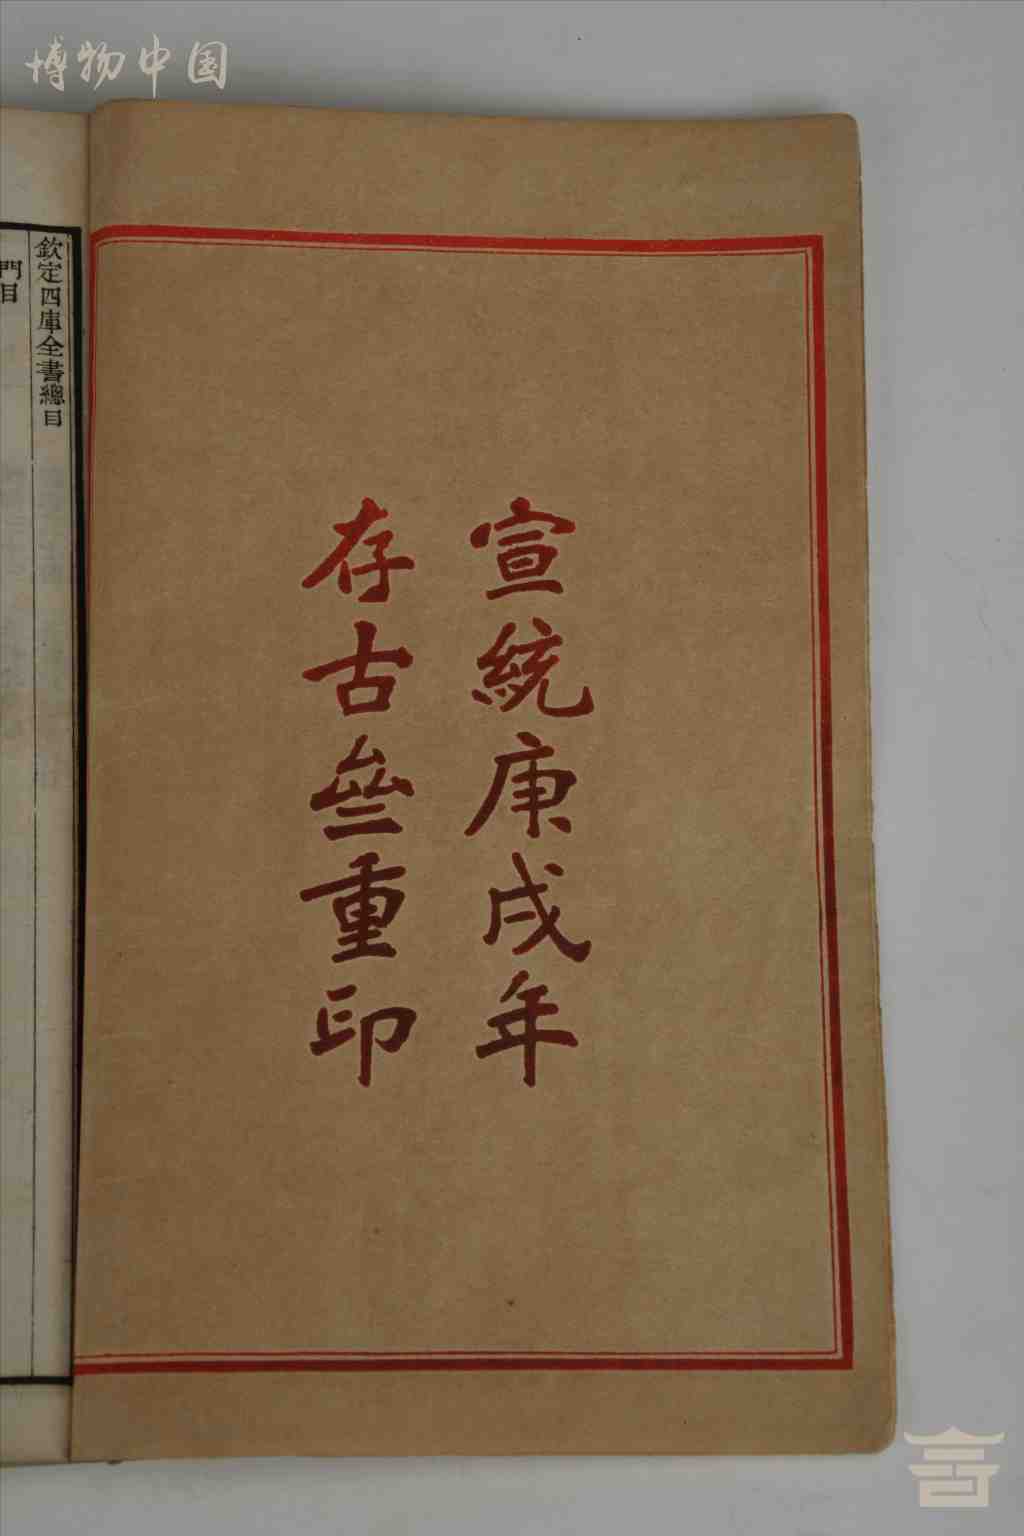 博物中国
宣統庚戌年
存古亝重印
欽定四庫全書總目
門目